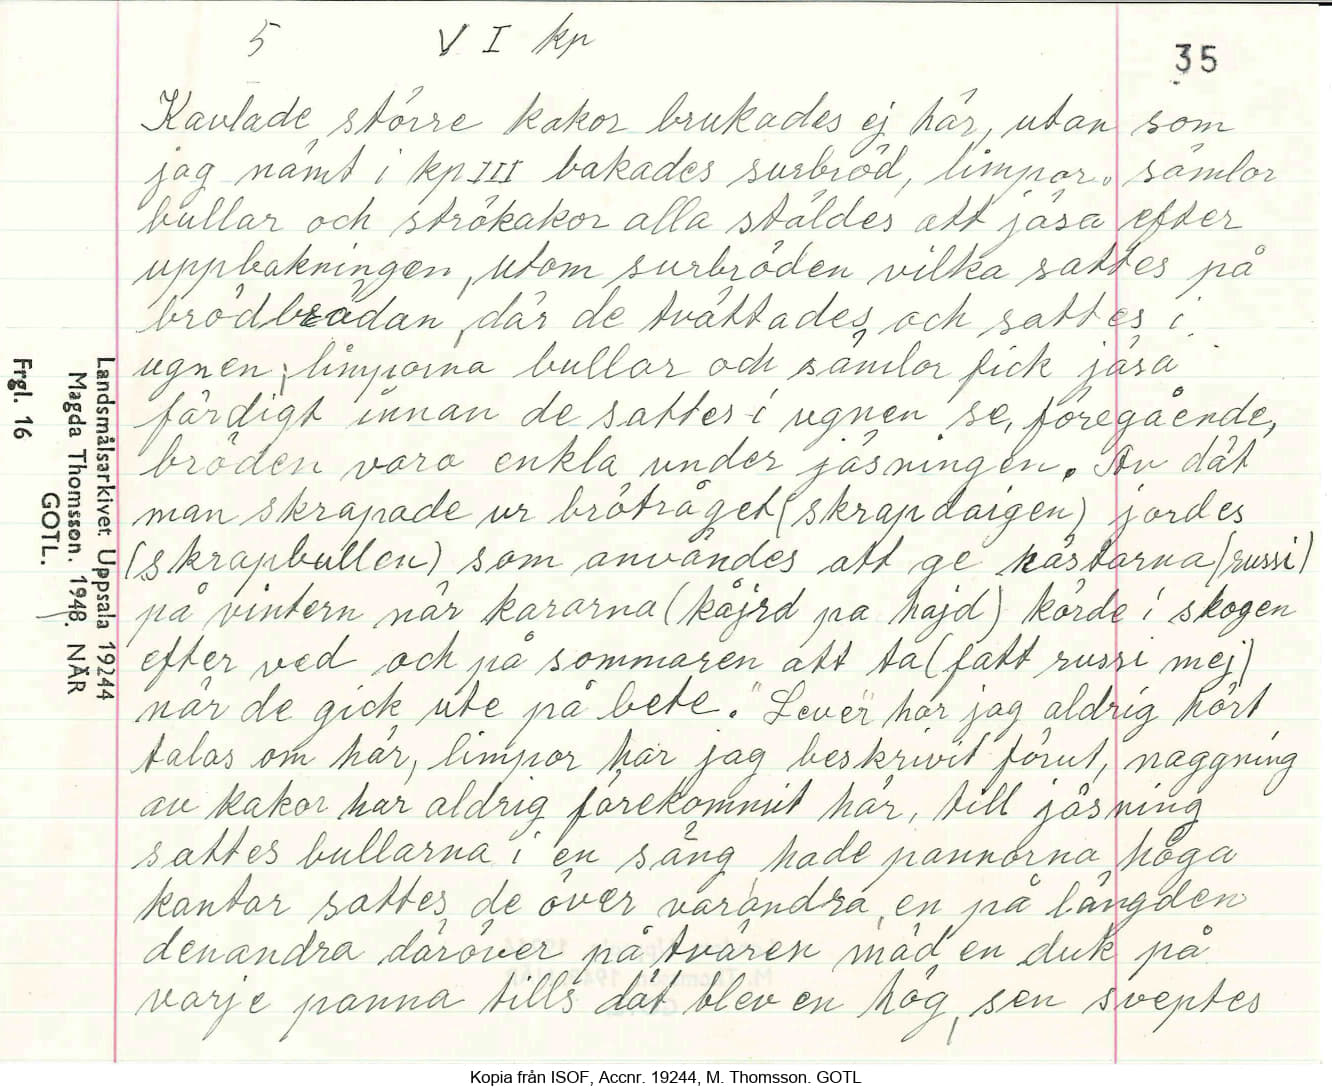 5 VI kp 35
Kavlade större kakor brukades ej här, utan som
jag nämt i kp III bakades surbröd, limpor, sämlor
bullar och strökakor alla stäldes att jäsa efter
uppbakningen, utom surbröden vilka sattes på
brödbrädan, där de tvättades och sattes i
ugnen, limporna bullar och sämlor fick jäsa
färdigt innan de sattes i ugnen se, föregående,
bröden vara enkla under jäsningen. Av dät
man skrapade ur bröträget (skrapdaigen) jordes
(skrapbullen) som användes att ge hästarna (russi)
på vintern när kararna (kåjrd pa hajd) körde i skogen
efter ved och på sommaren att ta (fatt russi mej)
när de gick ute på bete. "Lever" har jag aldrig hört
talas om här, limpor har jag beskrivit förut, naggning
av kakor har aldrig förekommit här, till jäsning
sattes bullarna i en säng, hade pannorna höga
kantar sattes de över varandra, en på längden
denandra däröver på tvären mäd en duk på
varje panna tills dät blev en hög, sen sveptes
Landsmålsarkivet Uppsala 19244
Magda Thomsson. 1948. NÄR
GOTL.
Frgl. 16
Kopia från ISOF, Accnr. 19244, M. Thomsson. GOTL